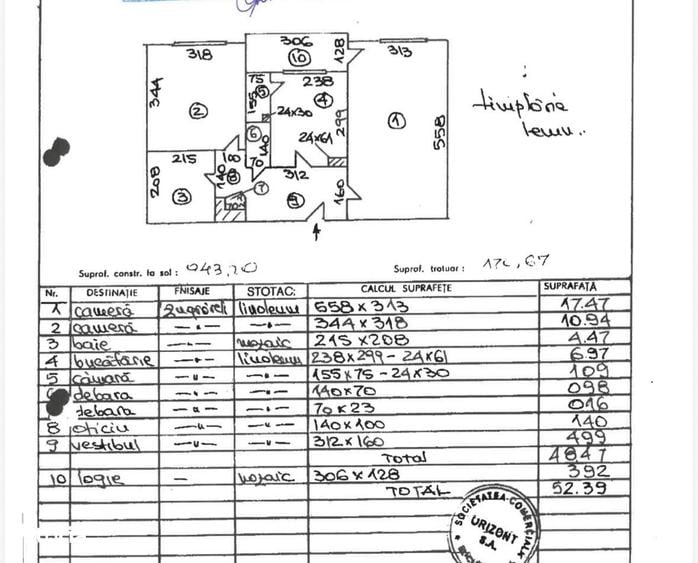 318
306
128
313
10
75
238
155
5
4
344
2
24x30
299
1
558
6
24x61
140
8
70
215
140
312
208
3
7
9
160
tîmplărie
lemn..
Supraf. constr. la sol: 043,20
Supraf. trotuar: 176,67
Nr. DESTINAȚIE FNISAJE STOTAC: CALCUL SUPRAFEȚE SUPRAFAȚĂ
1 cameră zugrăveli linoleum 558 x 313 17.47
2 cameră —"— —"— 344 x 318 10.94
3 baie —"— mozaic 215 x 208 4.47
4 bucătărie —"— linoleum 238 x 299 - 24 x 61 6.97
5 cămară —"— —"— 155 x 75 - 24 x 30 109
debara —"— —"— 140 x 70 098
debara —"— —"— 70 x 23 016
8 oficiu —"— —"— 140 x 100 140
9 vestibul —"— —"— 312 x 160 499
Total 4847
10 logie — mozaic 306 x 128 392
TOTAL 52.39
SOCIETATEA COMERCIALĂ
URIZONT
S.A.